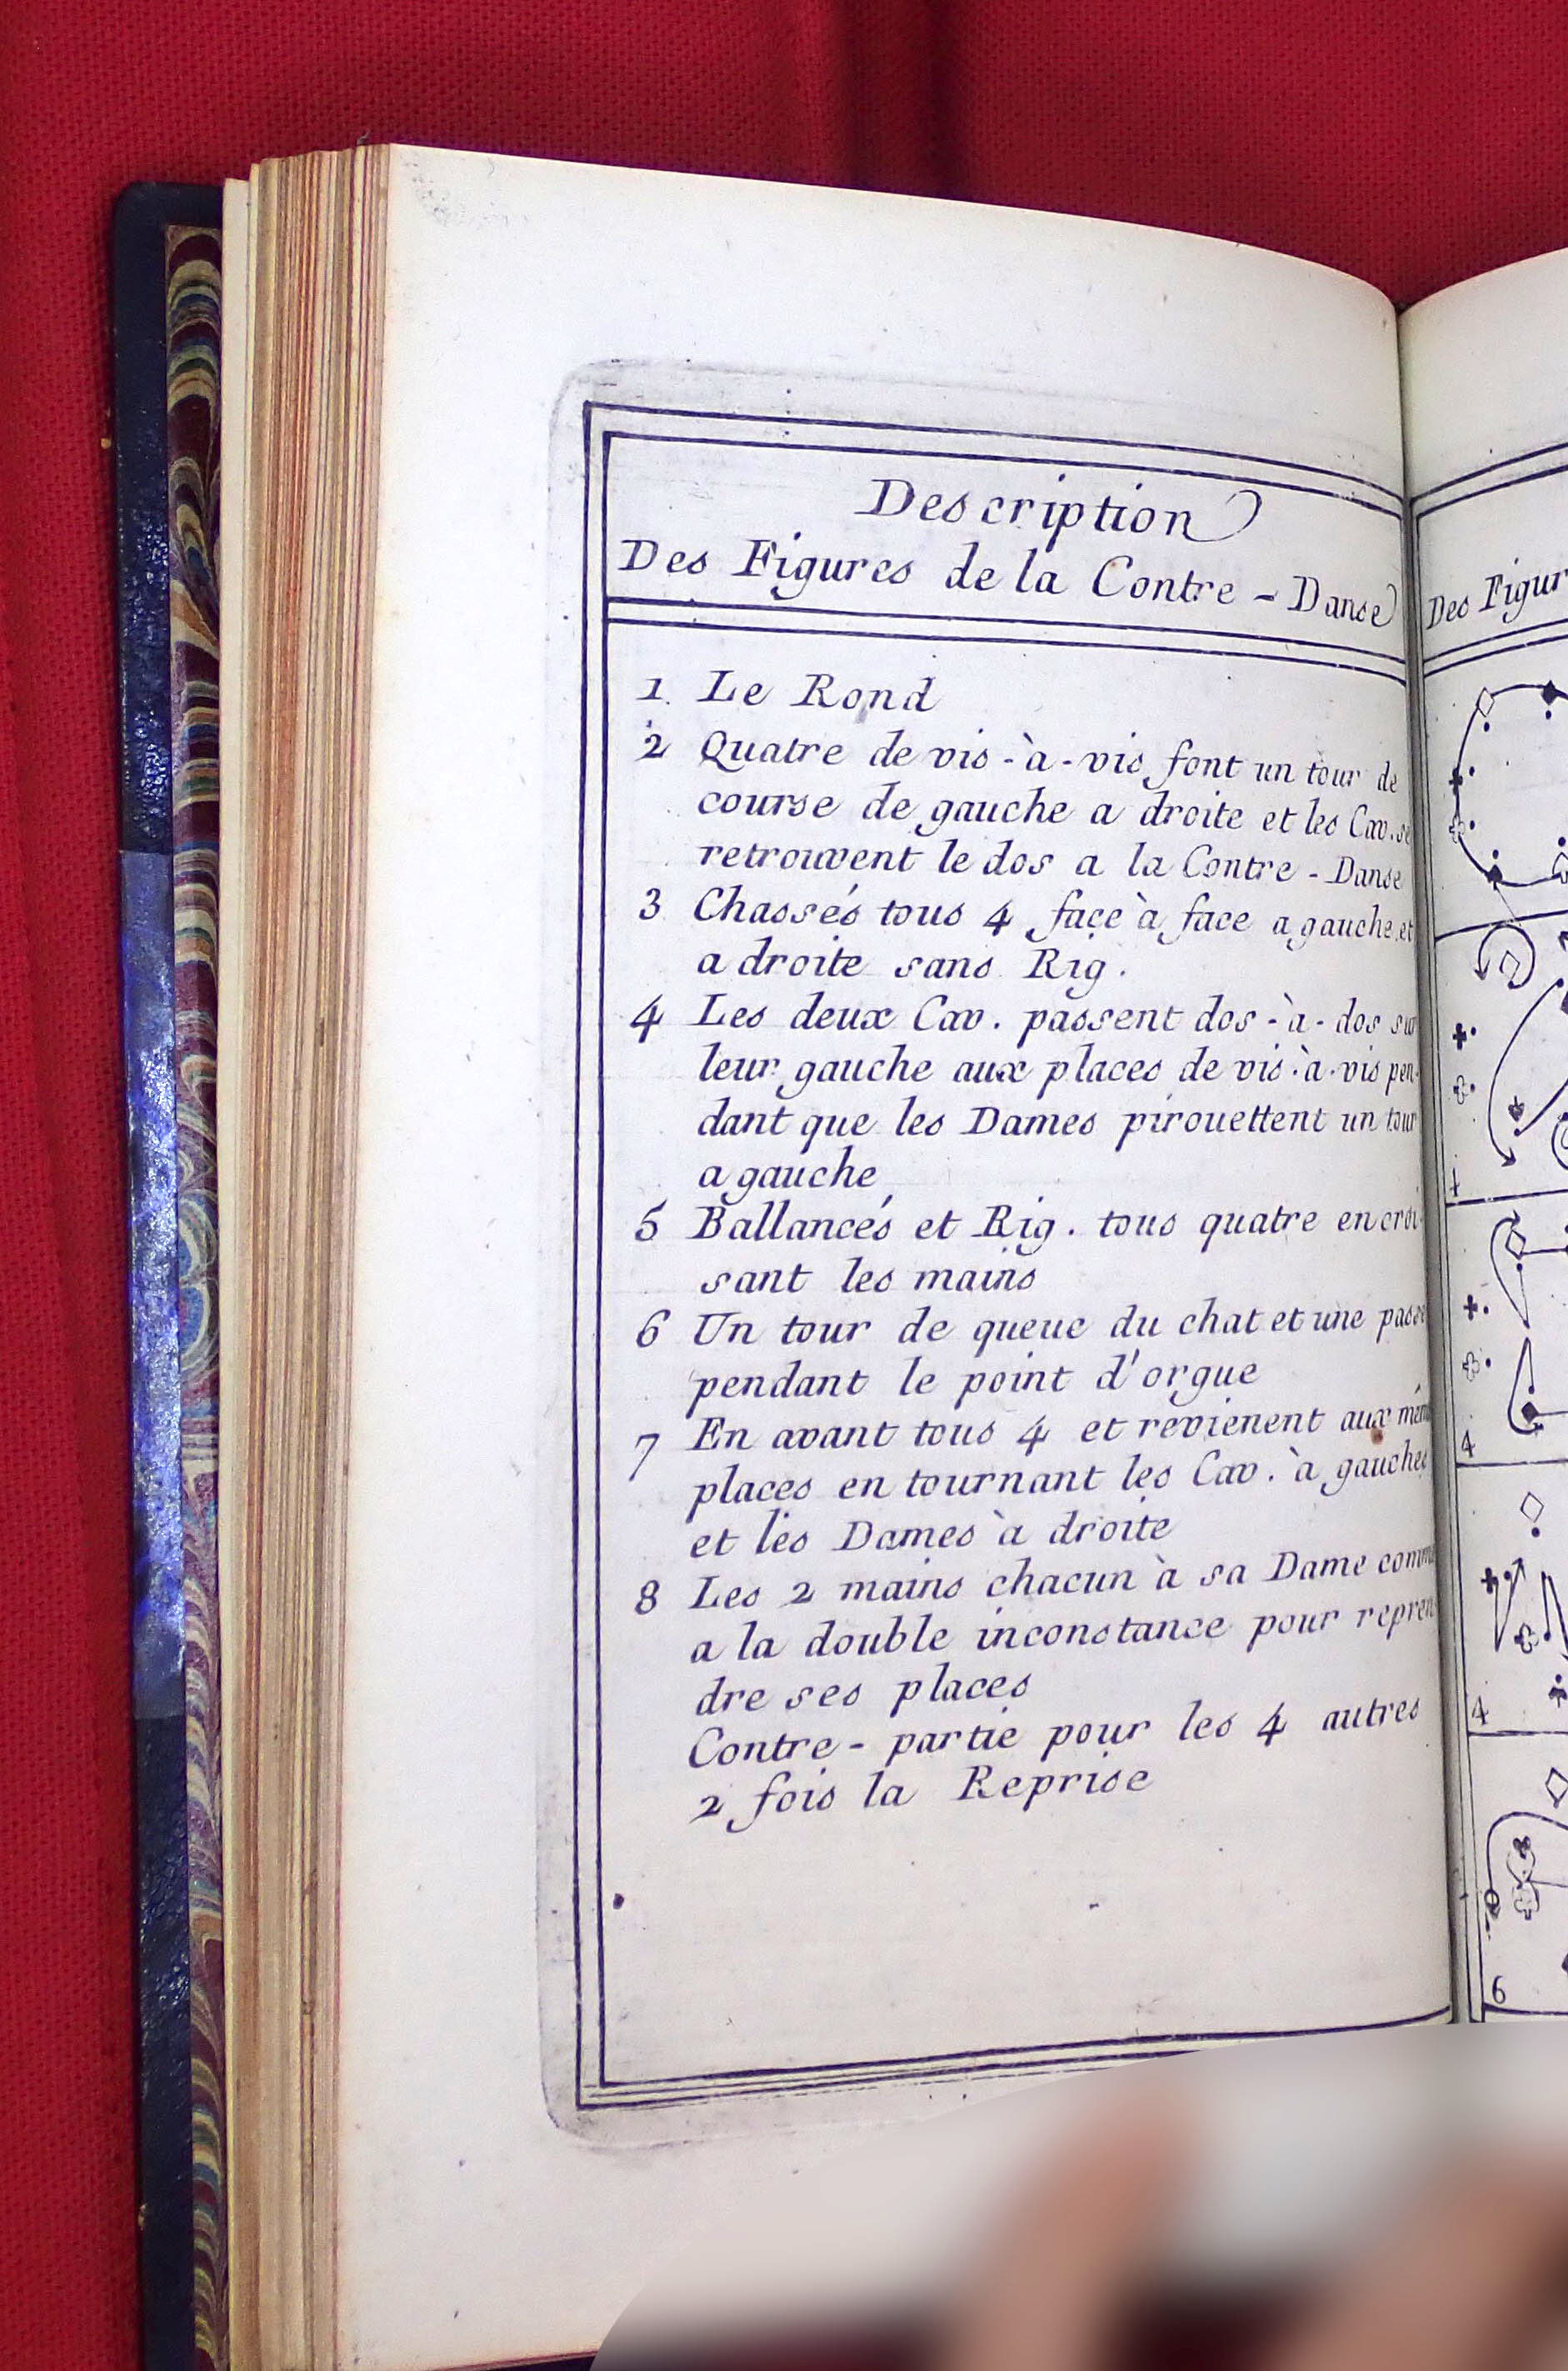 Description
Des Figures de la Contre - Danse
1. Le Rond
2 Quatre de vis-à-vis font un tour de
course de gauche a droite et les Cav. se
retrouvent le dos a la Contre - Danse
3 Chassés tous 4 façe à face a gauche et
a droite sans Rig.
4 Les deux Cav. passent dos-à-dos sur
leur gauche aux places de vis-à-vis pen-
dant que les Dames pirouettent un tour
a gauche
5 Ballancés et Rig. tous quatre en croi-
sant les mains
6 Un tour de queue du chat et une passe
pendant le point d'orgue
7 En avant tous 4 et revienent aux
places en tournant les Cav. à gauches
et les Dames à droite
8 Les 2 mains chacun à sa Dame
a la double inconstance pour repren
dre ses places
Contre-partie pour les 4 autres
2 fois la Reprise
Des Figur
4
4
6